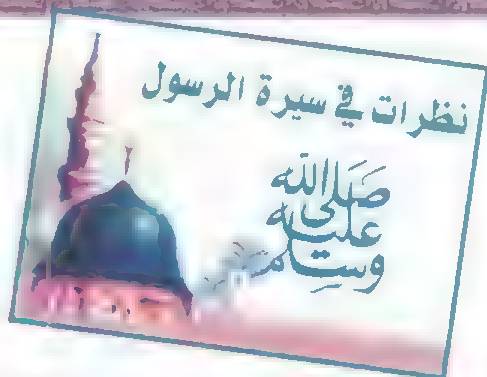 نظرات في سيرة الرسول
صلى الله
عليه
وسلم